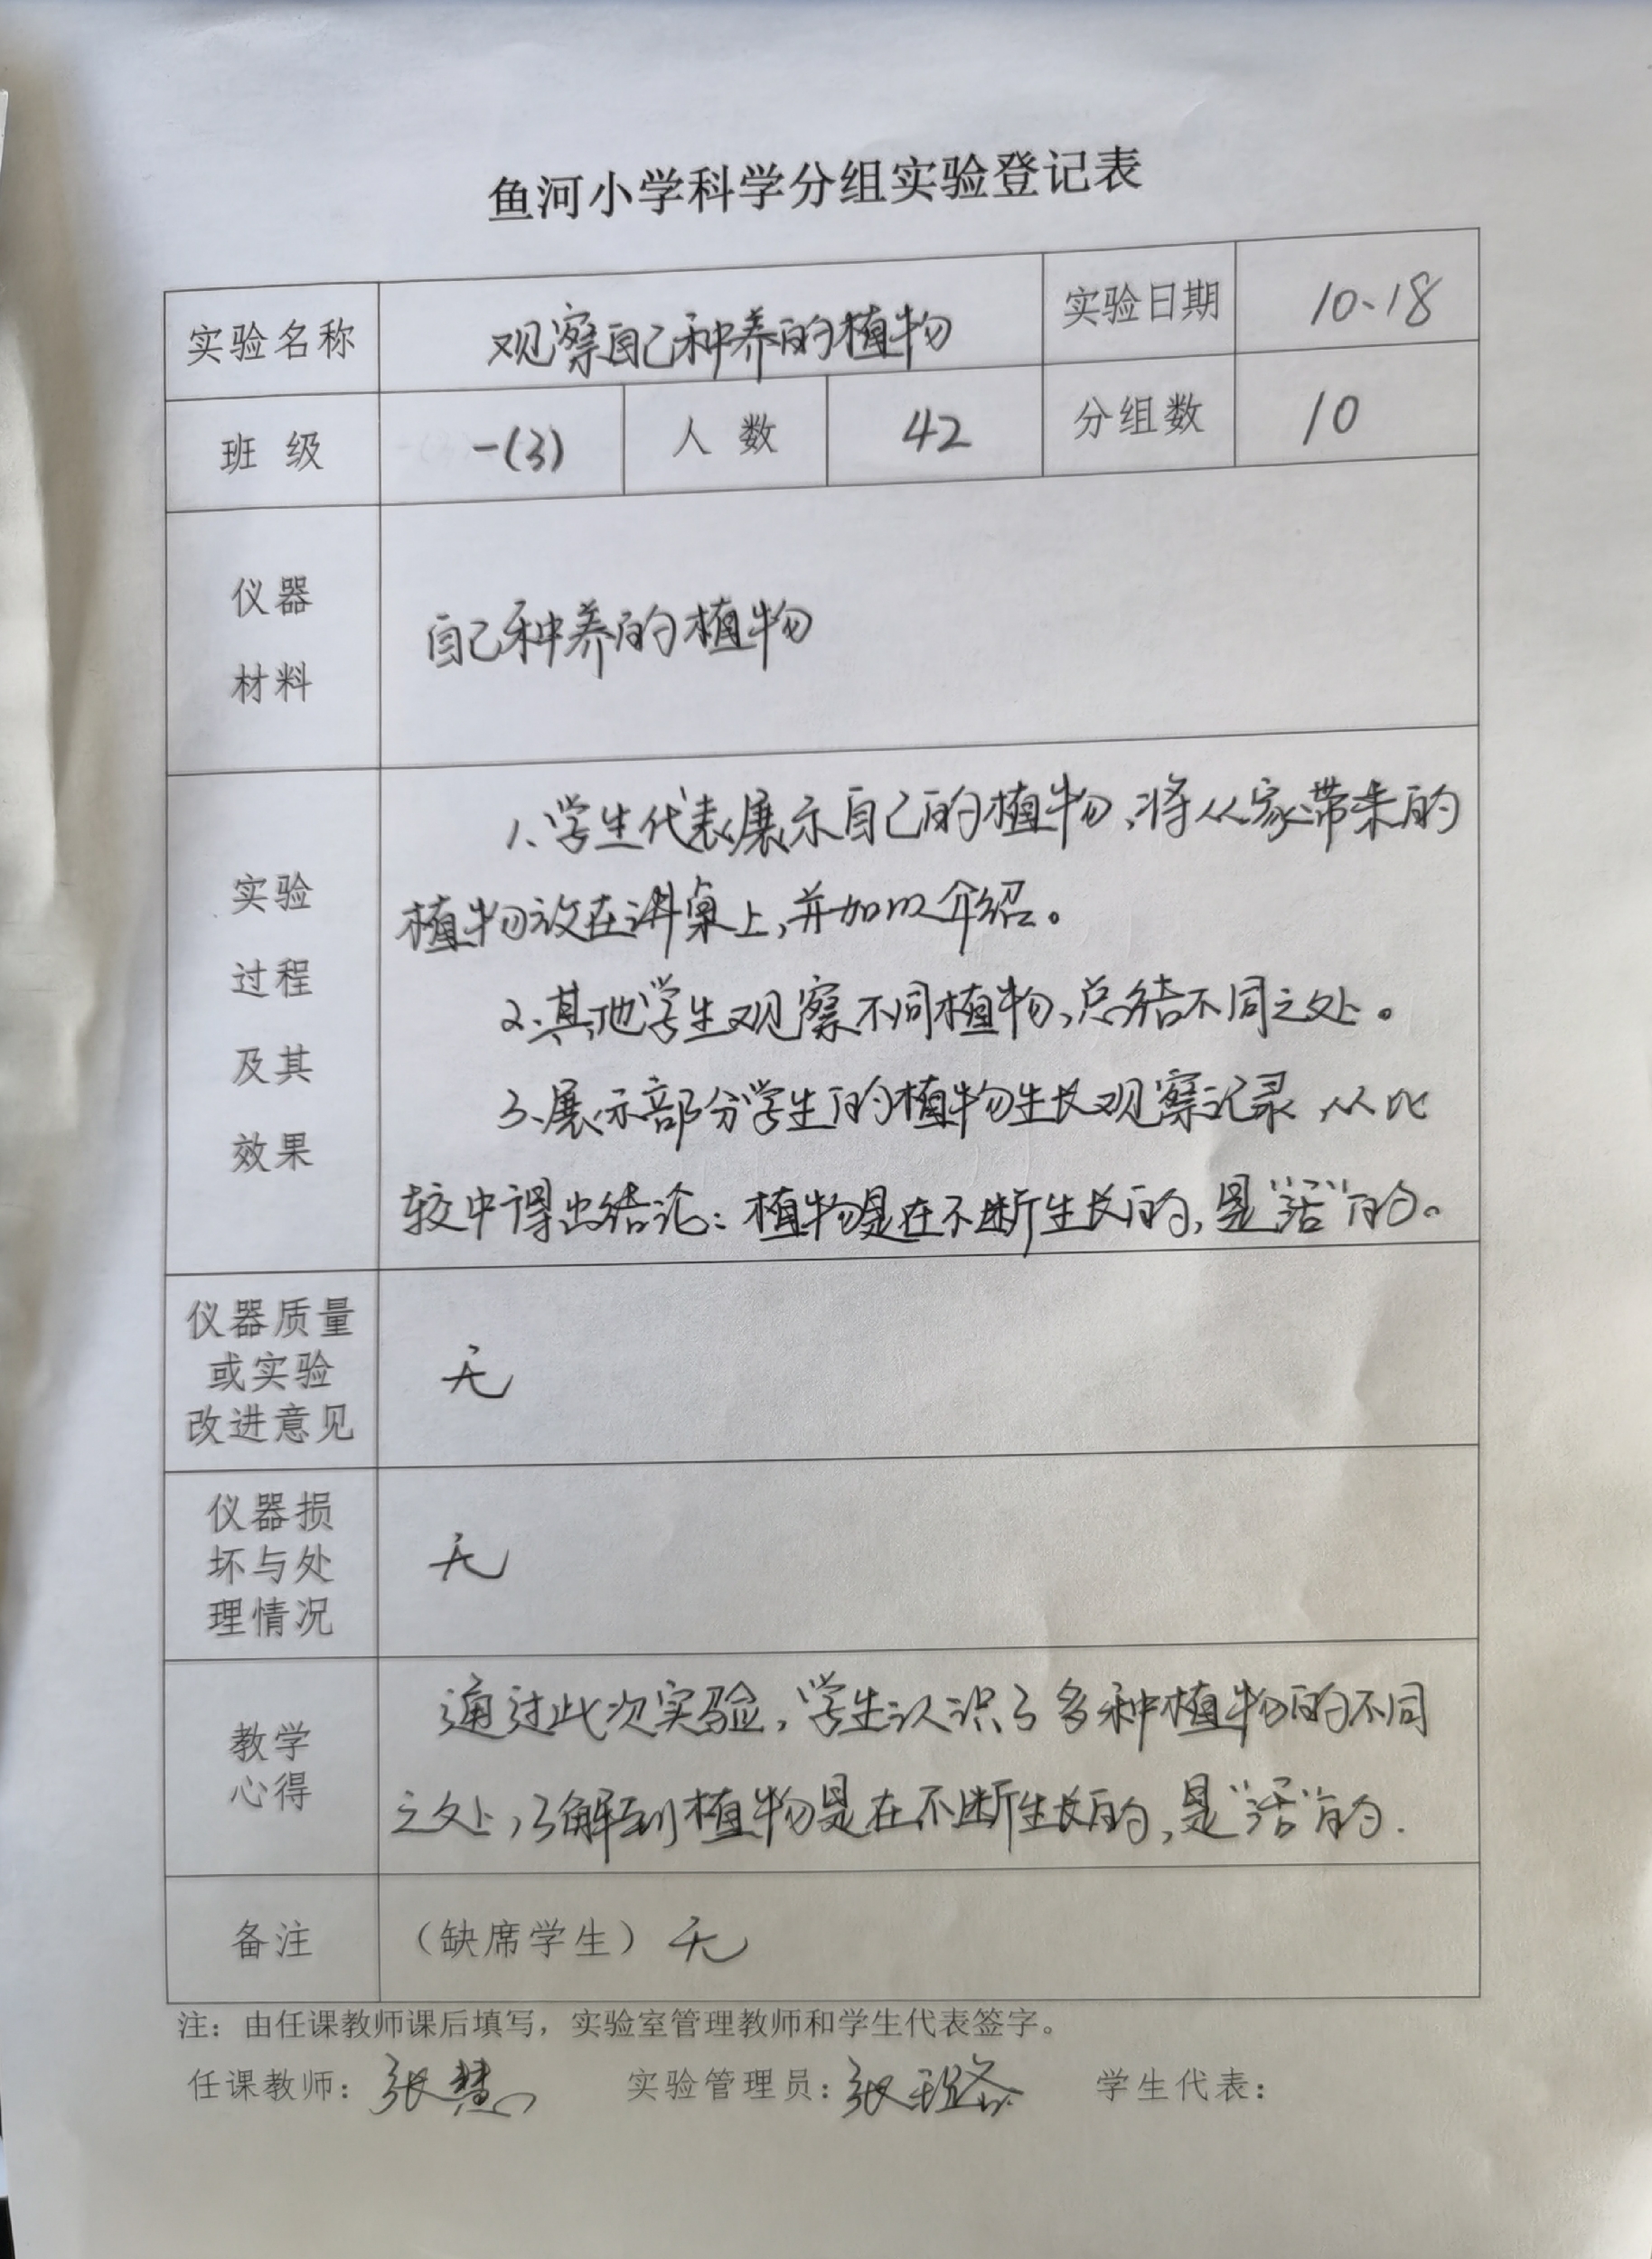 鱼河小学科学分组实验登记表
实验名称 观察自己种养的植物 实验日期 10、18
班 级 一(3) 人 数 42 分组数 10
仪器
材料
自己种养的植物
实验
过程
及其
效果
1、学生代表展示自己的植物,将从家带来的
植物放在讲桌上,并加以介绍。
2、其他学生观察不同植物,总结不同之处。
3、展示部分学生的植物生长观察记录 从比
较中得出结论:植物是在不断生长的,是“活”的。
仪器质量
或实验
改进意见
无
仪器损
坏与处
理情况
无
教学
心得
通过此次实验,学生认识了多种植物的不同
之处,了解到植物是在不断生长的,是“活”的.
备注 (缺席学生) 无
注：由任课教师课后填写，实验室管理教师和学生代表签字。
任课教师：张慧 实验管理员：张 学生代表：